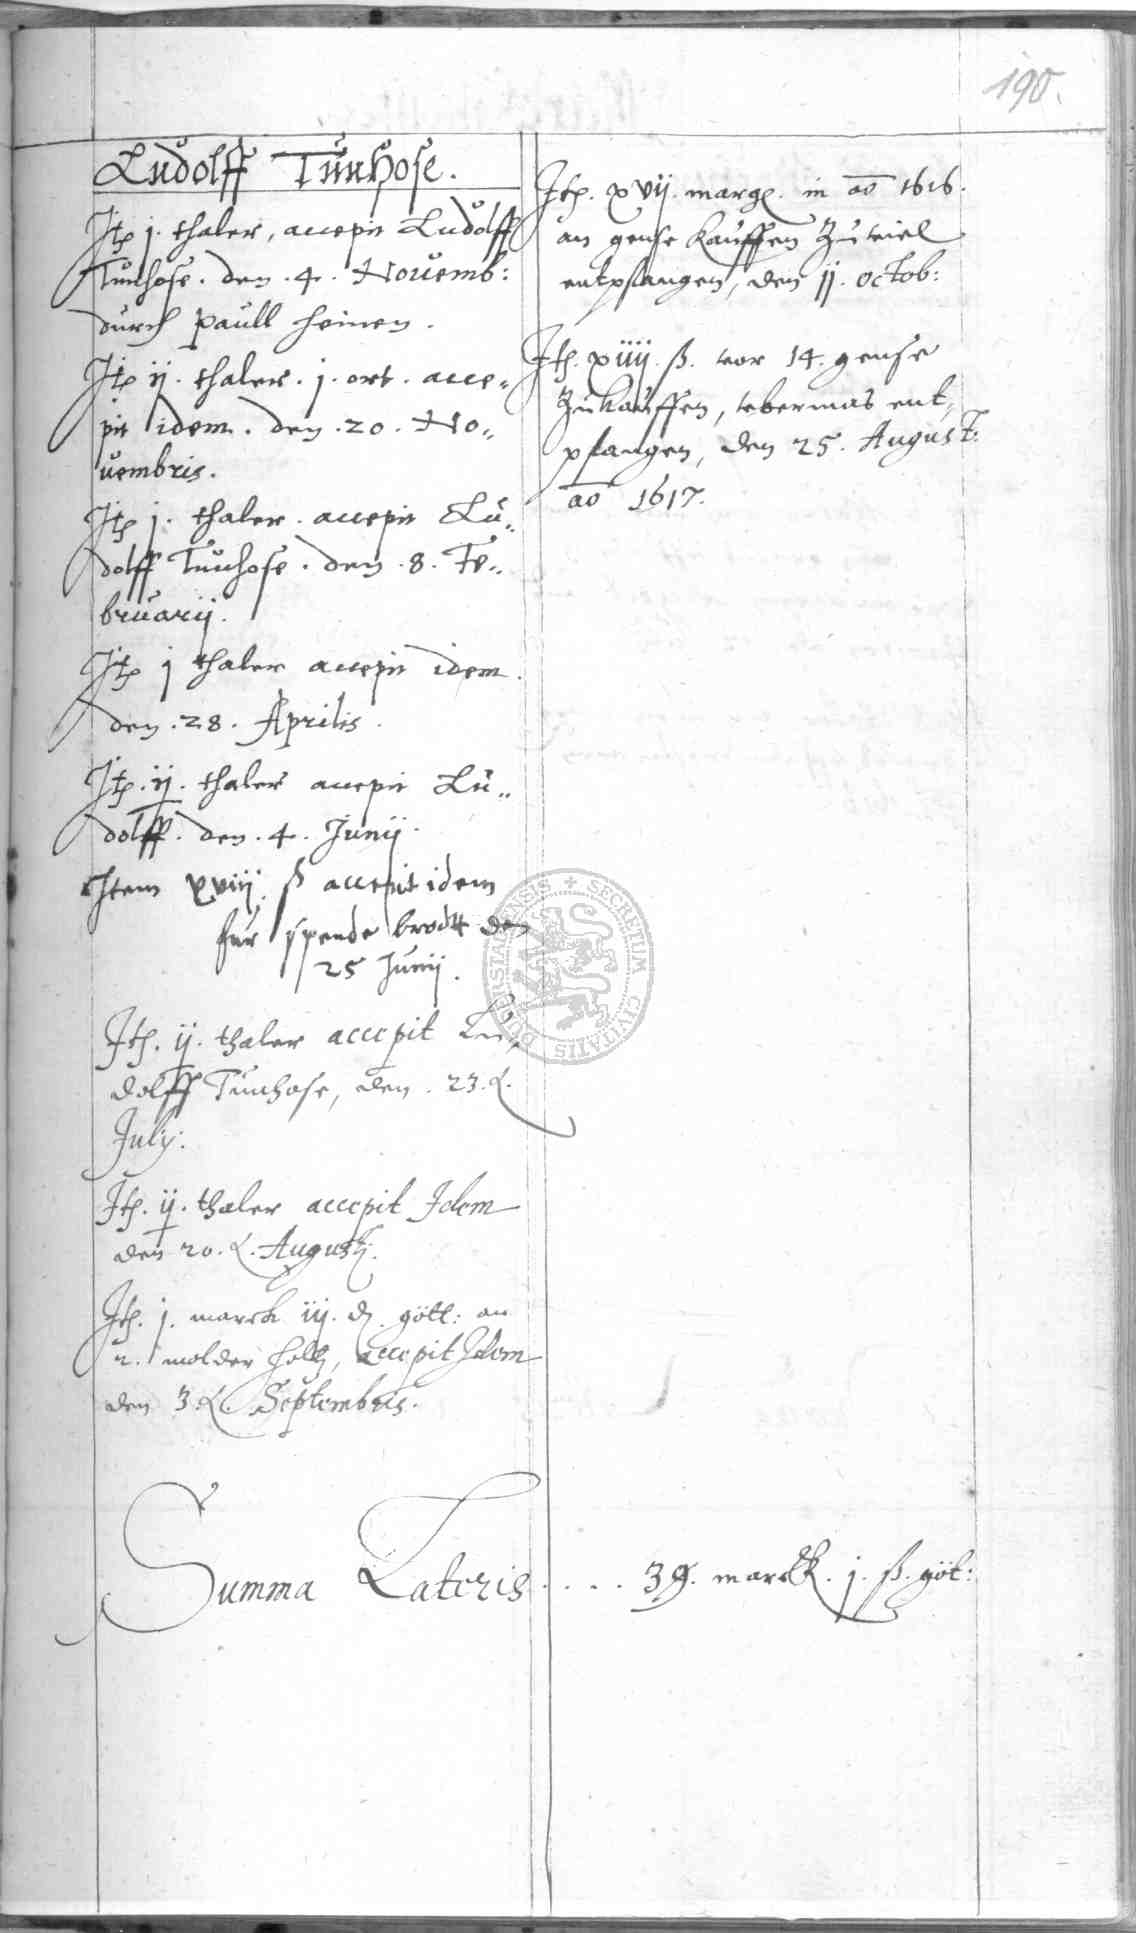 190.
Ludolff Tunhose.
Itē j. thaler, accepit Ludolff
Tunhose. den .4. Novemb:
durch Paull Heinen.
Itē ij. thaler. j. ort. acce„
pit idem. den .20. No„
vembris.
Itē j. thaler. accepit Lu„
dolff Tunhose. den .8. Fe„
bruarij.
Itē j thaler accepit idem.
den .28. Aprilis.
Itē. ij. thaler accepit Lu„
dolff. den .4. Junij.
Item xviij. ß accepit idem
fur spende brodtt den
25 Junij.
Itē. ij. thaler accepit Lu„
dolff Tunhose, den .23.
July:
Itē. ij. thaler accepit Idem
den 20. Augustj.
Itē. j. marck iij. gött: an
2. molder holtz, accepit Idem
den 3. Septembris.
Itē. xvij. in aō 1616.
an gense kauffen zu viel
entpfangen, den ij. octob:
Itē. xiiij. ß. vor 14. gense
zukauffen, ubermas ent„
pfangen, den 25. August:
aō 1617.
Summa Lateris . . . . 39. marck. j. ß. göt:
SECRETUM CIVITATIS DUDERSTADENSIS